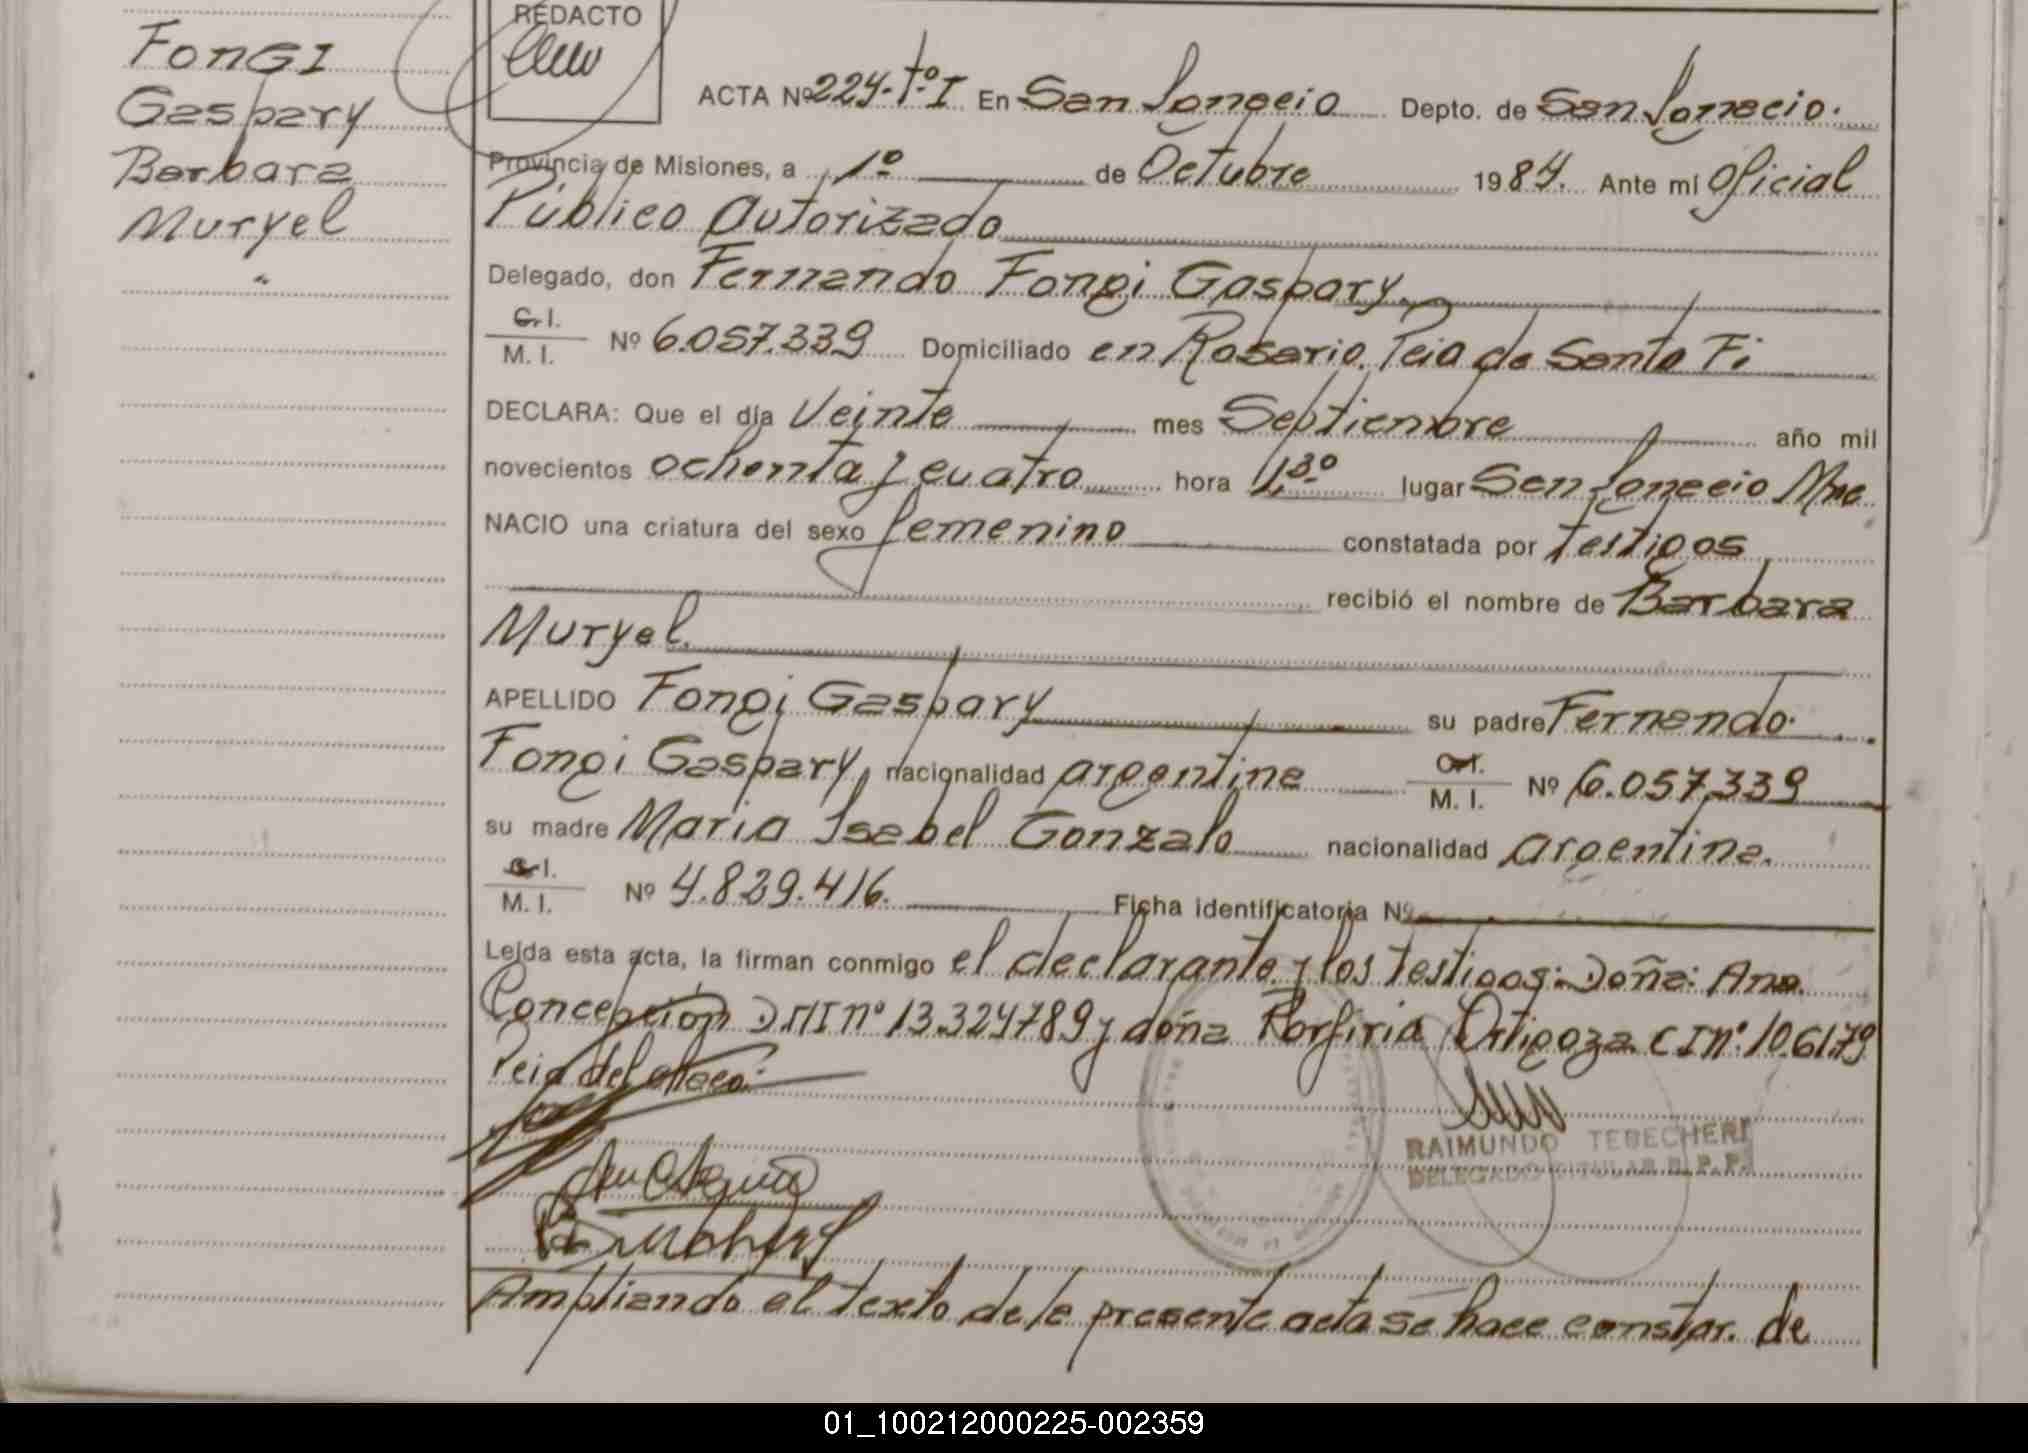 FONGI
Gaspary
Barbara
Muryel
"
REDACTO
ACTA Nº 224-Tº I En San Ignacio Depto. de San Ignacio.
Provincia de Misiones, a 1º de Octubre 1984. Ante mí Oficial
Público Autorizado
Delegado, don Fernando Fongi Gaspary
C.I.
M. I. Nº 6.057.339 Domiciliado en Rosario. Pcia de Santa Fi
DECLARA: Que el día Veinte mes Septiembre año mil
novecientos ochenta y cuatro hora 1,30 lugar San Ignacio Mnes
NACIO una criatura del sexo femenino constatada por testigos
recibió el nombre de Barbara
Muryel.
APELLIDO Fongi Gaspary su padre Fernando
Fongi Gaspary, nacionalidad argentina C.I.
M. I. Nº 6.057.339
su madre Maria Isabel Gonzalo nacionalidad argentina.
C.I.
M. I. Nº 4.829.416. Ficha identificatoria Nº
Leída esta acta, la firman conmigo el declarante y los testigos: Doña: Ana
Concepción DNI nº 13.324789 y doña Porfiria Ortigoza CI nº 106179
Pcia del
RAIMUNDO TEBECHERI
DELEGADO TITULAR R. P. P.
Ampliando el texto de la presente acta se hace constar. de
01_100212000225-002359